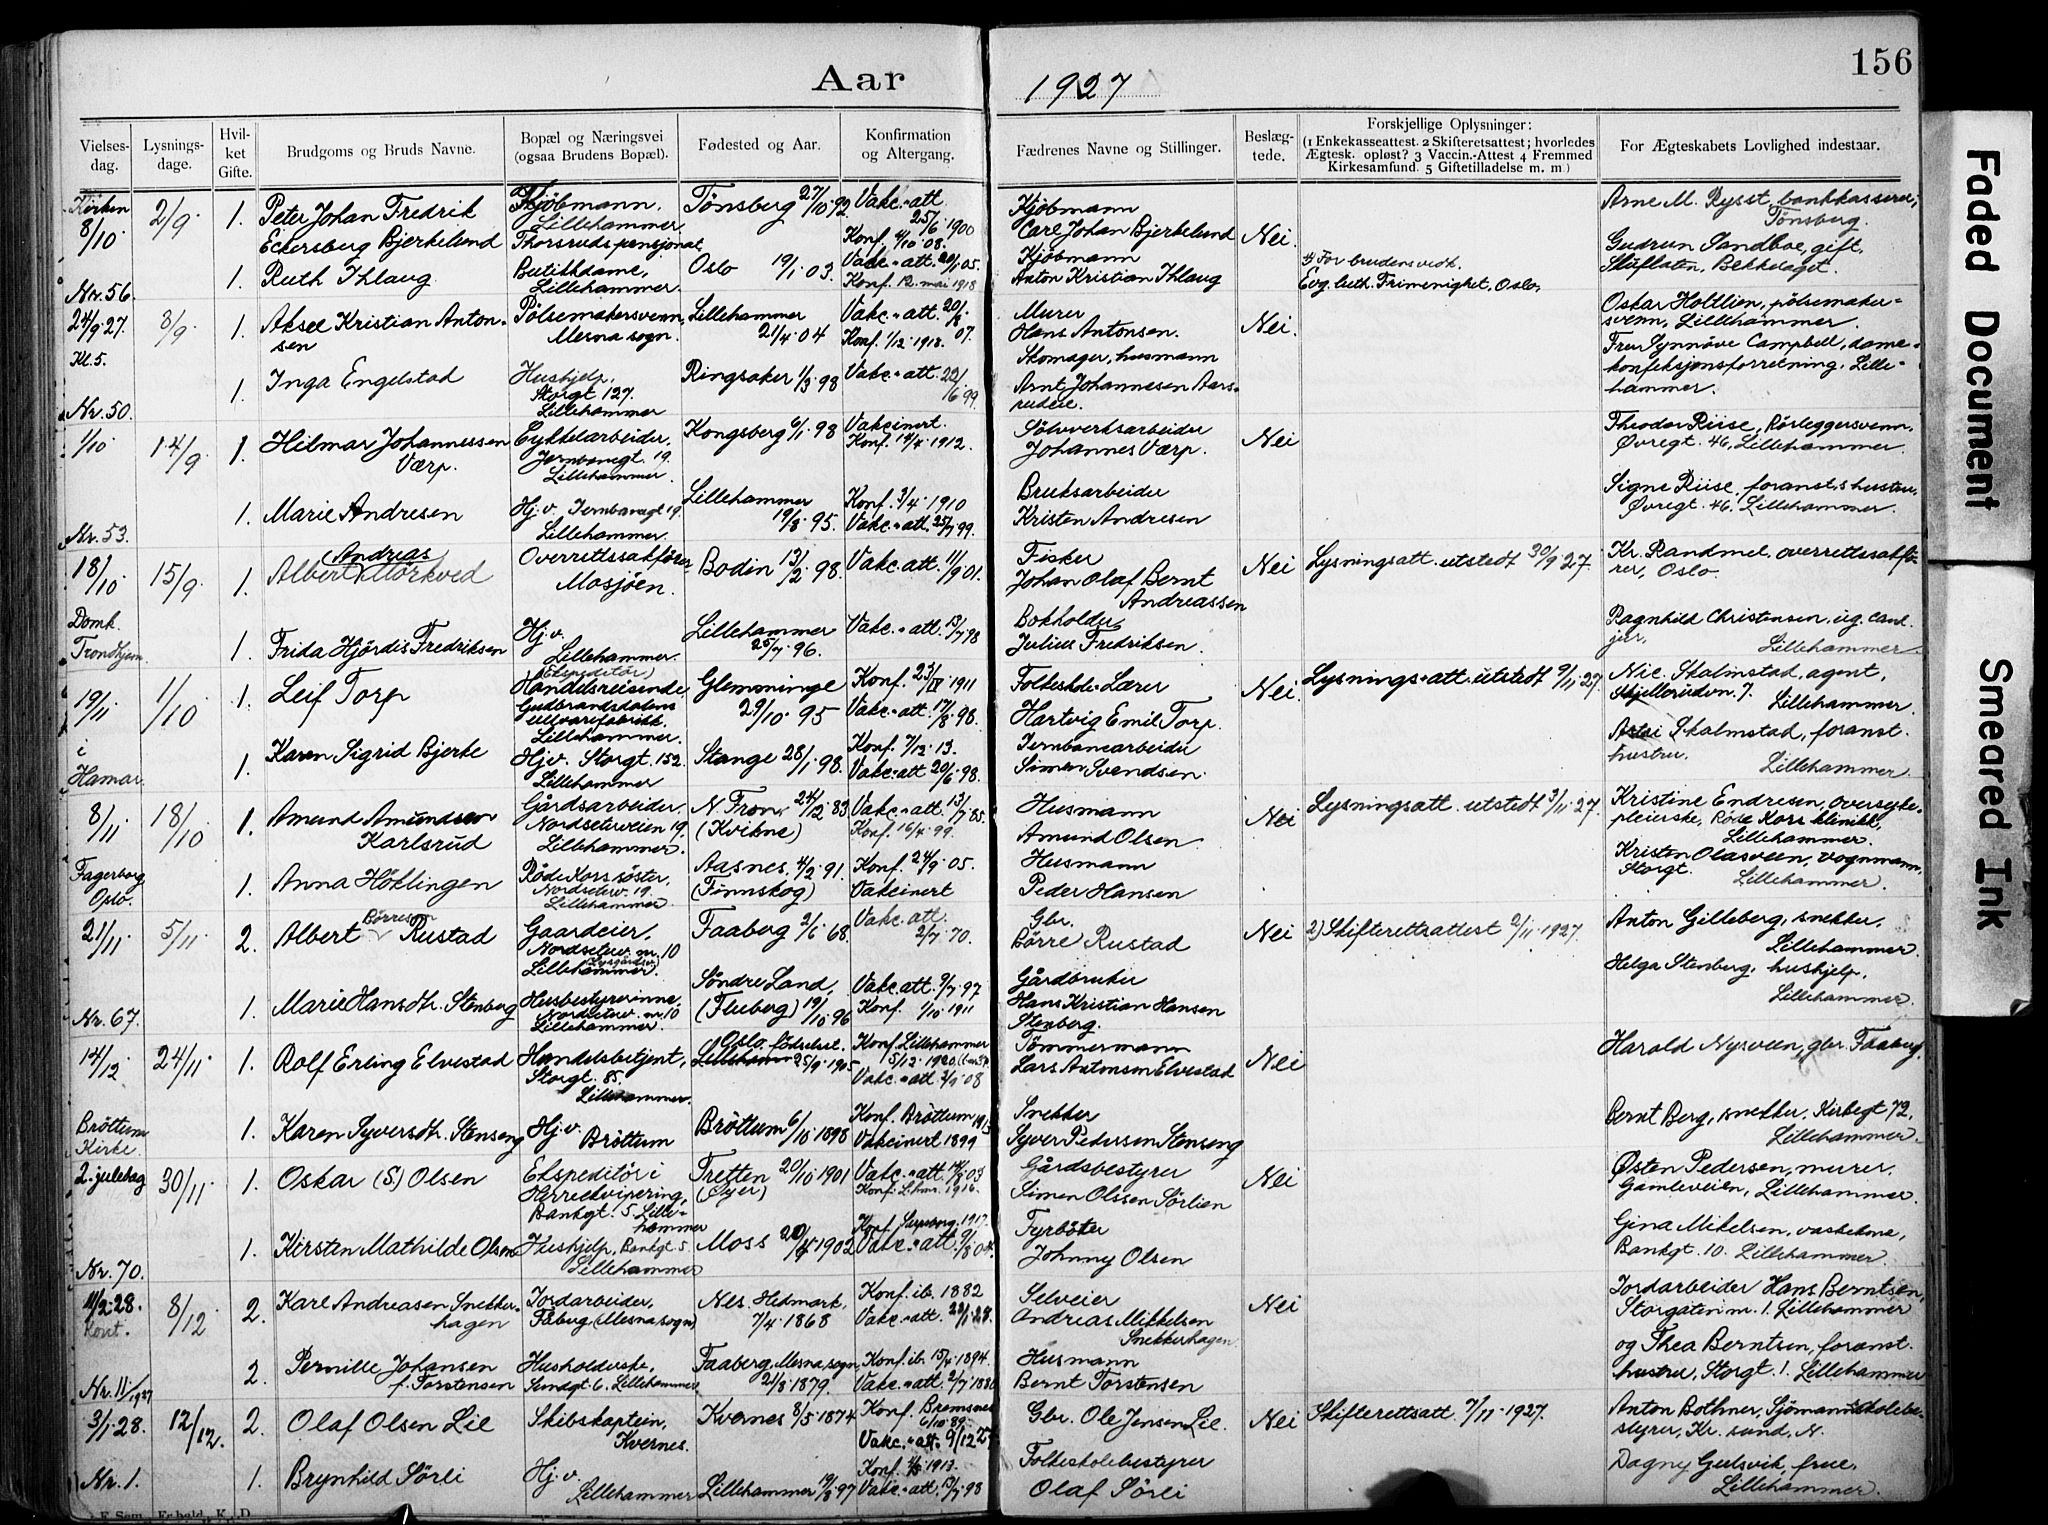 Aar 1927
156
Vielses-dag.
Lysnings-dage.
Hvil-ket Gifte.
Brudgoms og Bruds Navne.
Bopæl og Næringsvei (ogsaa Brudens Bopæl).
Fødested og Aar.
Konfirmation og Altergang.
Fædrenes Navne og Stillinger.
Beslæg-tede.
Forskjellige Oplysninger:
(1 Enkekasseattest. 2 Skifteretsattest; hvorledes
Ægtesk. opløst? 3 Vaccin.-Attest 4 Fremmed
Kirkesamfund. 5 Giftetilladelse m. m)
For Ægteskabets Lovlighed indestaar.
Kirken 8/10 2/9 1. Peter Johan Fredrik Eckersberg Bjerkelund Kjøbmann, Lillehammer Thorsruds pensjonat Tønsberg 27/10 92 Vakc.att 25/6 1900 Konf. 4/10 08. Kjøbmann Carl Johan Bjerkelund Nei. Arne M. Rysst, bankkasserer, Tønsberg.
Nr. 56. 1. Ruth Ihlaug Butikkdame, Lillehammer. Oslo 19/1 03. Vakc.att. 20/1 05. Konf. 12. mai 1918 Kjøbmann Anton Kristian Ihlaug 4) For brudens vedk. Evg. luth. Frimenighet, Oslo, Gudrun Sandboe, gift, Bekkelaget.
24/9 27. Kl. 5. 8/9 1. Aksel Kristian Antonsen Pølsemakersvenn, Mesna sogn. Lillehammer 21/4 04 Vakc.att. 20/8 07. Konf. 1/12 1918. Murer Hans Antonsen. Nei. Oskar Holtlien, pølsemakersvenn, Lillehammer.
Nr. 50. 1. Inga Engelstad Hushjelp, Storgt 127. Lillehammer Ringsaker 1/3 98 Vakc.att. 22/6 99. Skomager, husmann Arnt Johannesen Aarsrudeie. Fru Synnöve Campbell, damekonfeksjonsforretning, Lillehammer.
1/10 14/9 1. Hilmar Johannessen Værp. Cykkelarbeider, Jernbanegt. 19. Lillehammer. Kongsberg 6/1 98 Vakcinert. Konf. 14/4 1912. Sølvverksarbeider Johannes Værp. Nei Theodor Riise, Rørleggersvenn, Øvregt. 46, Lillehammer.
Nr. 53. 1. Marie Andresen Hj. v. Jernbanegt 19. Lillehammer. Lillehammer 19/8 95. Konf. 3/4 1910 Vakc.att. 25/7 99. Bruksarbeider Kristen Andresen Signe Riise, foranst.s hustru, Øvregt. 46. Lillehammer.
18/10 15/9 1. Albert Andreas Mörkved Overrettssakfører Mosjöen. Bodin 13/2 98. Vakc.att. 11/9 01. Fisker Johan Olaf Bernt Andreassen Nei Lysningsatt. utstedt 30/9 27. Kr. Randmel, overrettssakförer, Oslo.
Domk. Trondhjem. 1. Frida Hjørdis Fredriksen Hj. v. Lillehammer. Lillehammer 25/7 96. Vakc.att. 13/7 98 Bokholder Julius Fredriksen. Ragnhild Christensen, ug. cand jur, Lillehammer
19/11 1/10 1. Leif Torp (Ekspeditör) Handelsreisende Gudbrandsdalens ullvarefabrikk. Lillehammer. Glemminge 29/10 95 Konf. 23/IV 1911 Vakc.att. 17/8 98. Folkeskole-Lærer Hartvig Emil Torp. Nei. Lysnings-att. utstedt 9/11 27. Nic. Skalmstad, agent, Skjellerudvn. 7. Lillehammer.
i Hamar. 1. Karen Sigrid Bjerke Hj.v. Storgt. 152. Lillehammer Stange 28/1 98. Konf. 7/12 13. Vakc.att 20/6 98. Jernbanearbeider Simen Svendsen. Skalmstad, foranst. hustru. Lillehammer.
8/11 18/10 1. Amund Amundsen Karlsrud Gårdsarbeider, Nordseterveien 19. Lillehammer. N. Fron, 24/2 83 (Kvikne) Vakc.att. 13/7 85. Konf. 16/4 99. Husmann Amund Olsen Nei Lysningsatt. utstedt 3/11 27. Kristine Endresen, oversykepleierske, Röde Kors klinikk, Lillehammer.
Fagerborg Oslo. 1. Anna Höklingen Röde Kors söster, Nordseterv. 19. Lillehammer. Aasnes, 4/2 91. (Finnskog) Konf. 24/9 05. Vakcinert Husmann Peder Hansen Kristen Olasveen, vognmann, Storgt. Lillehammer.
21/11 5/11 2. Albert Börresen Rustad Gaardeier, Nordseterv. nr. 10 Lillehammer. Faaberg 2/6 68. Vakc.att. 2/7 70. Gbr. Börre Rustad Nei 2) Skifterettsattest 2/11 1927. Anton Gilleberg, snekker, Lillehammer.
Nr. 67. 1. Marie Hansdtr. Stenberg Husbestyrerinne, Nordseterv. nr. 10 Lillehammer. Söndre Land, (Fluberg) 19/10 96 Vakc.att. 9/7 97 Konf. 1/10 1911 Gårdbruker Hans Kristian Hansen Stenberg. Helga Stenberg, hushjelp, Lillehammer.
14/12 24/11 1. Rolf Erling Elvestad Handelsbetjent, Storgt. 85. Lillehammer. Oslo, födselsst. Lillehammer 25/9 1905 Konf. Lillehammer 5/12 1920 Vakc.att. 2/9 08 Tömmermann Lars Antonsen Elvestad Nei Harald Nysveen, gbr. Faaberg.
Bröttum Kirke. 1. Karen Syversdtr. Stenseng Hj. v. Bröttum Bröttum 6/10 1898 Konf. Bröttum 1913 Vakcinert 1899 Snekker Syver Pedersen Stenseng Bernt Berg, snekker, Kirkegt 72, Lillehammer.
2. juledag 30/11 1. Oskar (S.) Olsen Ekspeditör i Herreekvipering, Bankgt. 5. Lillehammer Tretten 20/10 1901 (Öyer) Vakc.att. 14/8 03 Konf. Lhmr. 1916. Gårdsbestyrer Simen Olsen Sörlien Nei Østen Pedersen, murer, Gamleveien, Lillehammer.
Nr. 70. 1. Kirsten Mathilde Olsen Hushjelp, Bankgt. 5. Lillehammer Moss 1902 Konf. Sarpsborg 1917. Vakc.att. 9/8 04. Fyrböter Johnny Olsen Gina Mikelsen, vaskekone, Bankgt. 10. Lillehammer.
11/2 28. Kont. 8/12 2. Karl Andreasen Snekkerhagen Jordarbeider, Fåberg (Mesna sogn) Nes. Hedmark, 7/4 1868 Konf. ib. 1882 Vakc.att. 23/1 28. Selveier Andreas Mikkelsen Snekkerhagen. Nei Jordarbeider Hans Berntsen, Storgaten nr. 1. Lillehammer
Nr. 11/1927 2. Pernille Johansen f. Torstensen Husholderske, Sundgt. 6. Lillehammer Faaberg, Mesna sogn, 21/8 1879. Konf. ib. 15/4 1894. Vakc.att. 2/7 1880 Husmann Bernt Torstensen og Thea Berntsen, foranst. hustru, Storgt. 1. Lillehammer
3/1 28. 12/12. 2. Olaf Olsen Lie Skibskaptein, Kvernes. Kvernes 8/5 1874 Konf. Bremsnes 6/10 89. Vakc.att. 9/12 27 Gbr. Ole Jensen Lie. Nei Skifterettsatt. 7/11 1927. Anton Bothner, Sjömannsskolebestyrer, Kr. sund, N.
Nr. 1. 1. Brynhild Sörli Hj. v. Lillehammer Lillehammer 19/8 97 Konf. 1913. Vakc.att. 13/7 98 Folkeskolebestyrer Olaf Sörli Dagny Gulsvik, frue, Lillehammer.
Faded Document
Smeared Ink